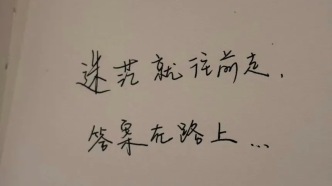 迷茫就往前走.
答案在路上...